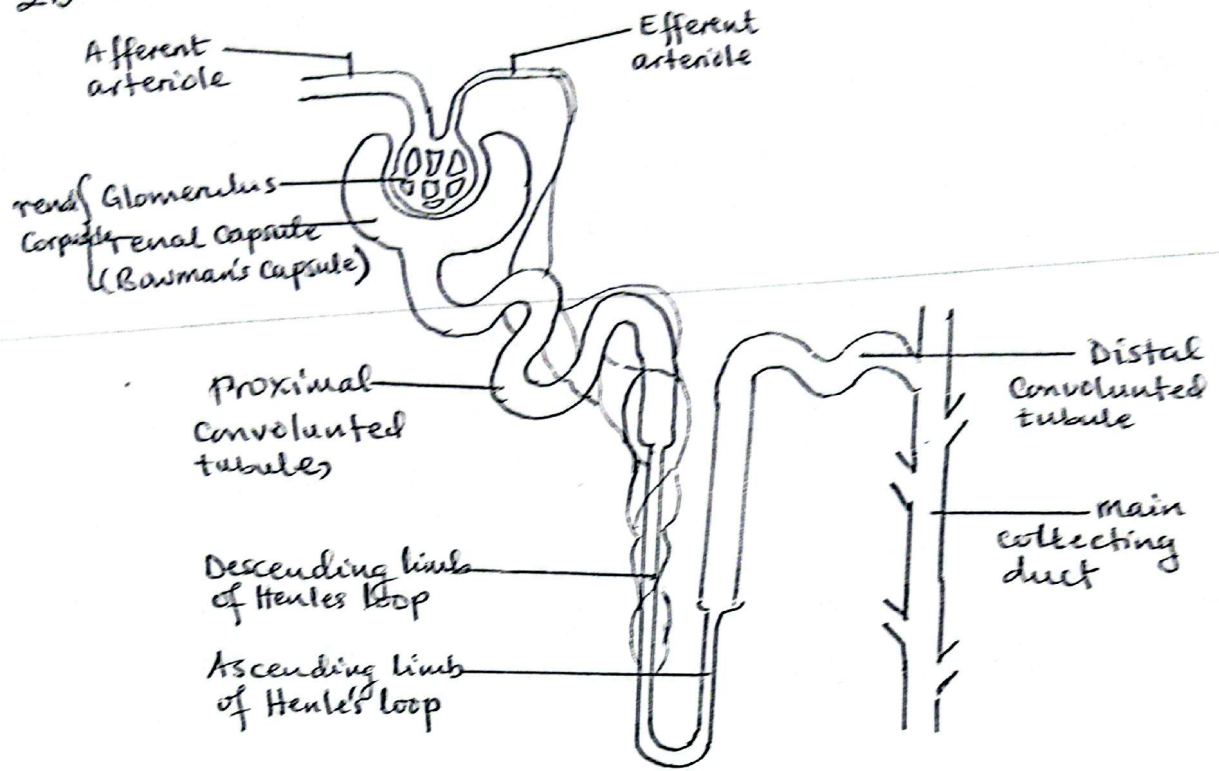 Afferent
arteriole
Efferent
arteriole
Glomerulus
renal Capsule
(Bowman's Capsule)
Proximal
Convolunted
tubules
Distal
Convolunted
tubule
main
collecting
duct
Descending limb
of Henles loop
Ascending limb
of Henle's loop